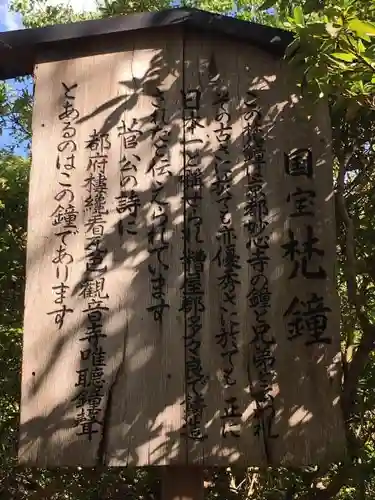 国宝梵鐘
この梵鐘は京都妙心寺の鐘と兄弟といわれ
その古さに於ても亦優秀さに於ても正に
日本一と称せられ糟屋郡多々良で鋳造
されたと伝えられています
菅公の詩に
都府楼纔看瓦色観音寺唯聴鐘聲
とあるのはこの鐘であります